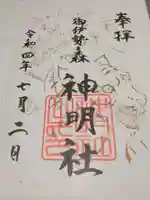 奉拝
御伊勢の森
神明社
令和四年
七月二日